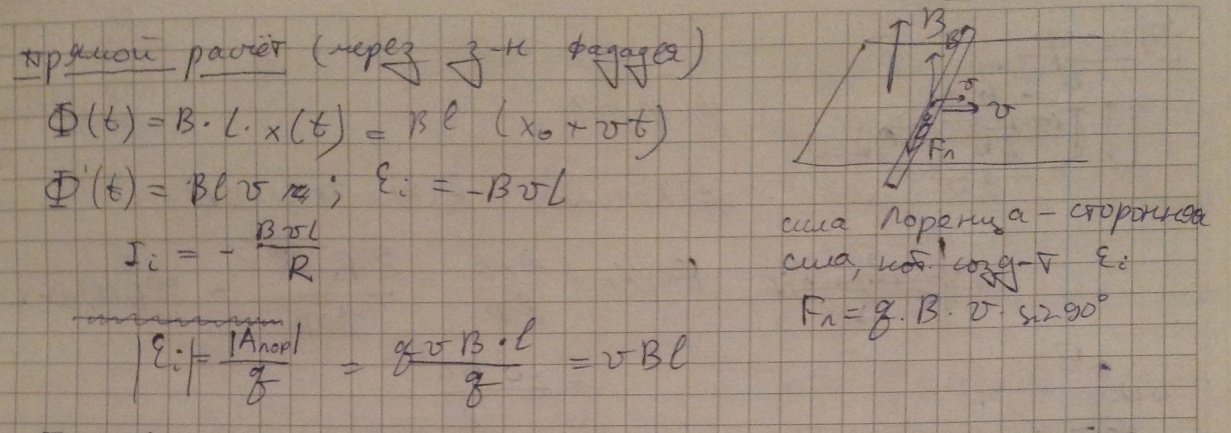 прямой расчёт (через з-н Фарадея)
Ф(t) = B · l · x(t) = Bl (x₀ + vt)
Ф'(t) = Blv ; Ɛi = -Bvl
Ii = - Bvl / R
|Ɛi| = |Aлор| / q = qvB·l / q = vBl
B
B
v
v
Fл
сила Лоренца – сторонняя
сила, кот. созд-т Ɛi
Fл = q · B · v · sin90°